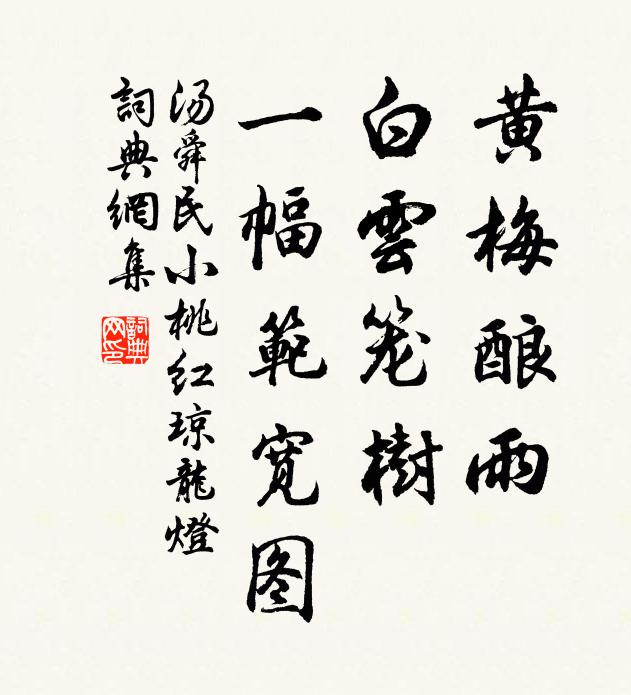 黄梅酿雨
白雲笼樹
一幅範宽图
汤舜民小桃红琼龍燈
詞典網集
詞典网印